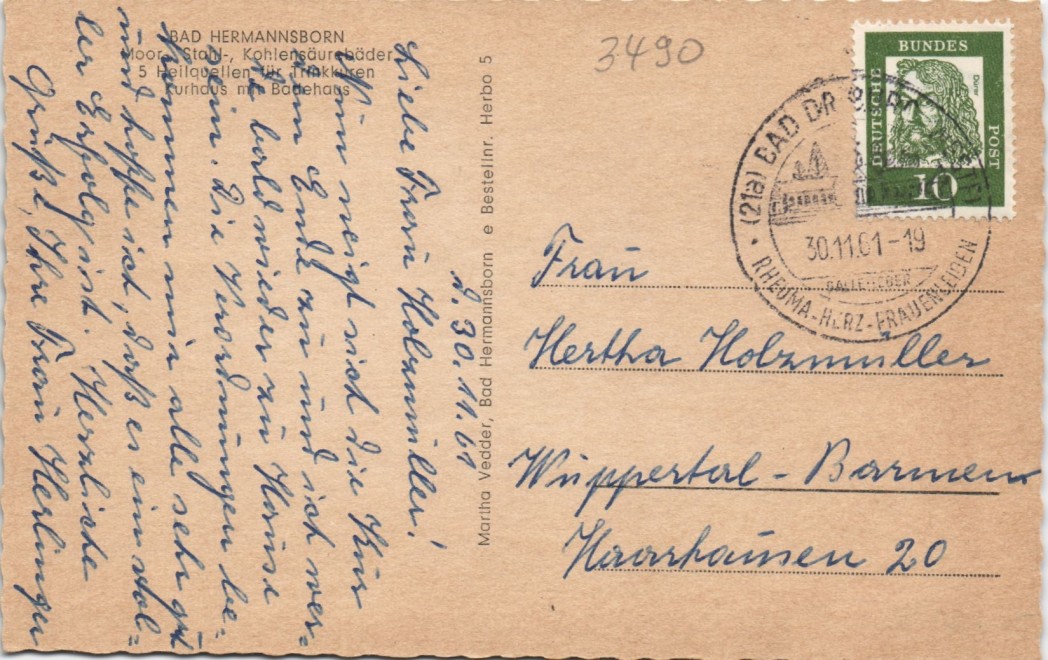 BAD HERMANNSBORN
Moor-, Stahl-, Kohlensäurebäder
5 Heilquellen für Trinkkuren
Kurhaus mit Badehaus
3490
DEUTSCHE BUNDES POST
Dürer
10
(21a) BAD DRIBURG
30.11.61-19
GALLE-LEBER
RHEUMA-HERZ-FRAUENLEIDEN
d. 30.11.61
Liebe Frau Holzmüller!
Nun neigt sich die Kur
dem Ende zu und ich wer=
de bald wieder zu Hause
sein. Die Verordnungen be=
kommen mir alle sehr gut
und hoffe ich, daß es ein vol=
ler Erfolg ist. Herzliche
Grüße, Ihre Frau Herlinger
Martha Vedder, Bad Hermannsborn e Bestellnr. Herbo 5
Frau
Hertha Holzmüller
Wuppertal-Barmen
Haarhausen 20